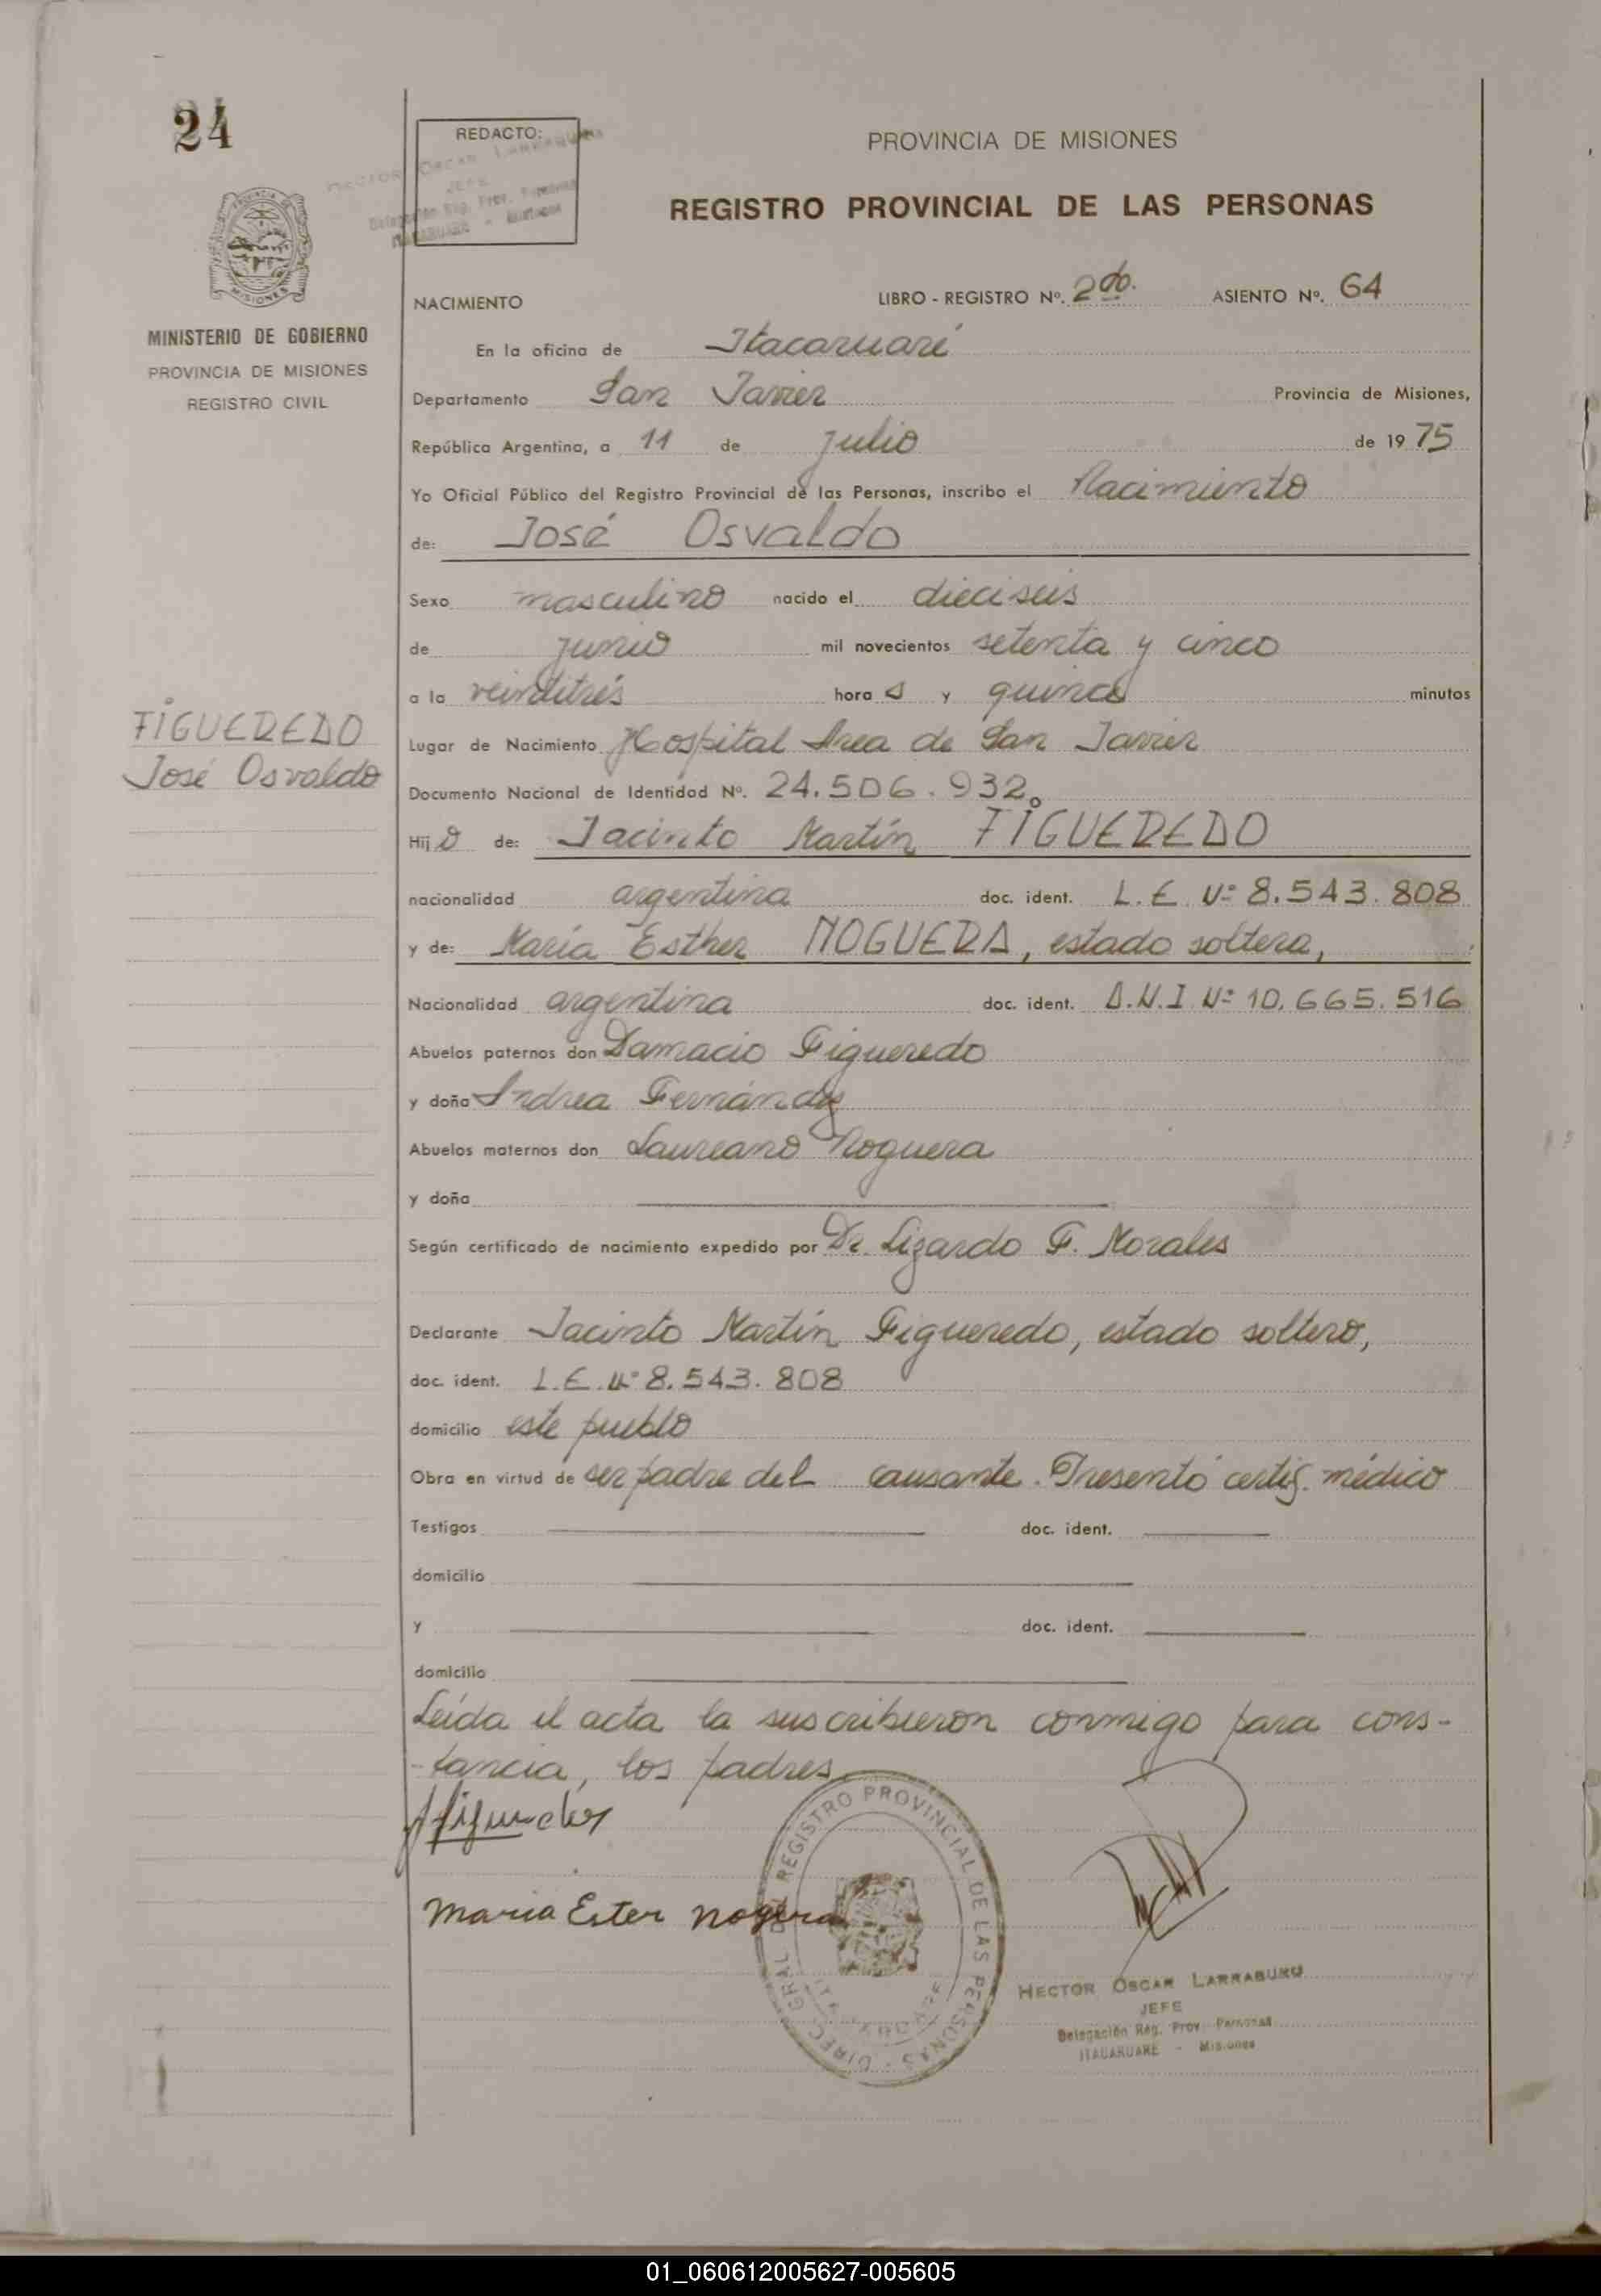 24
REDACTO:
HECTOR OSCAR LARRABURU
JEFE
Delegación Reg. Prov. Personas
ITACARUARE - Misiones
PROVINCIA DE MISIONES
REGISTRO PROVINCIAL DE LAS PERSONAS
MISIONES
MINISTERIO DE GOBIERNO
PROVINCIA DE MISIONES
REGISTRO CIVIL
NACIMIENTO LIBRO - REGISTRO Nº. 2do. ASIENTO Nº. 64
En la oficina de Itacaruaré
Departamento San Javier Provincia de Misiones,
República Argentina, a 11 de julio de 1975
Yo Oficial Público del Registro Provincial de las Personas, inscribo el Nacimiento
de: José Osvaldo
Sexo masculino nacido el dieciseis
de junio mil novecientos setenta y cinco
a la veintitrés horas y quince minutos
FIGUEREDO
José Osvaldo
Lugar de Nacimiento Hospital Area de San Javier
Documento Nacional de Identidad Nº. 24.506.932.
Hijo de: Jacinto Martín FIGUEREDO
nacionalidad argentina doc. ident. L.E. Nº 8.543.808
y de: María Esther NOGUERA, estado soltera,
Nacionalidad argentina doc. ident. D.N.I. Nº 10.665.516
Abuelos paternos don Damacio Figueredo
y doña Andrea Fernández
Abuelos maternos don Laureano Noguera
y doña
Según certificado de nacimiento expedido por Dr. Lizardo F. Morales
Declarante Jacinto Martín Figueredo, estado soltero,
doc. ident. L.E. Nº 8.543.808
domicilio este pueblo
Obra en virtud de ser padre del causante. Presentó certif. médico
Testigos doc. ident.
domicilio
y doc. ident.
domicilio
Leída el acta la suscribieron conmigo para cons-
-tancia, los padres
Maria Ester nogera
DIREC. GRAL DEL REGISTRO PROVINCIAL DE LAS PERSONAS
HECTOR OSCAR LARRABURU
JEFE
Delegación Reg. Prov. Personas
ITACARUARE - Misiones
01_060612005627-005605